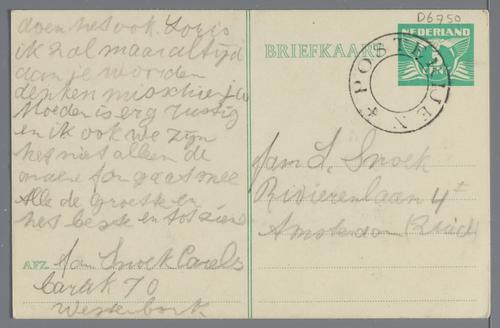 D6750
doen het ook. Loris
ik zal maar altijd
aan je woorden
denken misschien
Moeder is erg rustig
en ik ook we zijn
het niet alleen de
gaat mee
Alle de groeten en
het beste en tot ziens
AFZ. Jan Snoek Carels
Barak 70
Westerbork
BRIEFKAART
NEDERLAND
POSTERIJEN
fam L. Snoek
Rivierenlaan 4
Amsterdam Zuid